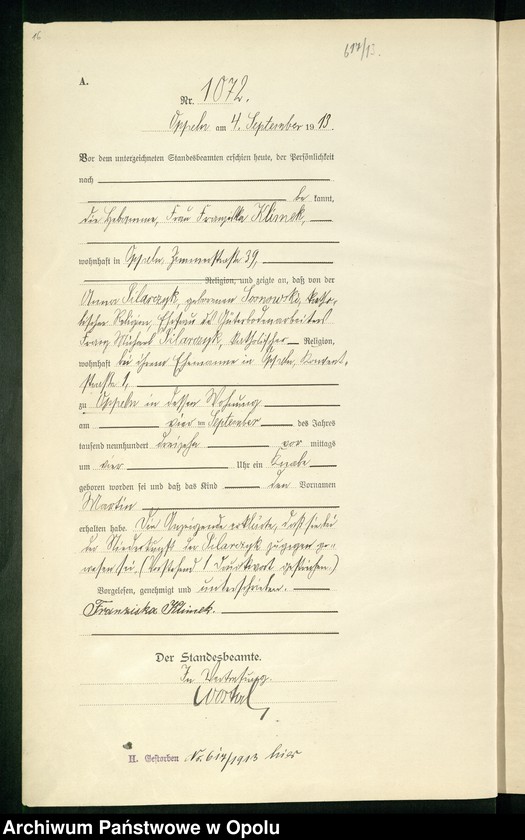 16
617/13.
A.
Nr. 1072.
Oppeln am 4. September 1913.
Vor dem unterzeichneten Standesbeamten erschien heute, der Persönlichkeit
nach
bekannt,
die Hebamme, Frau Franziska Klimek,
wohnhaft in Oppeln, Zimmerstraße 39,
Religion, und zeigte an, daß von der
Anna Pilarczyk, geborenen Sornowski, katho-
lischer Religion, Ehefrau des Güterbodenarbeiters
Franz Pilarczyk, katholischer Religion,
wohnhaft bei ihrem Ehemanne in Oppeln, Konvent-
straße 1,
zu Oppeln in dessen Wohnung
am vier ten September des Jahres
tausend neunhundert dreizehn vor mittags
um vier Uhr ein Knabe
geboren worden sei und daß das Kind den Vornamen
Martin
erhalten habe. Die Anzeigende erklärte, daß sie bei
der Niederkunft der Pilarczyk zugegen ge-
wesen sei. (Vorstehend 1 Druckwort gestrichen.)
Vorgelesen, genehmigt und unterschrieben.
Franziska Klimek.
Der Standesbeamte.
In Vertretung.
H. Gestorben No. 617/1913 hier
Archiwum Państwowe w Opolu